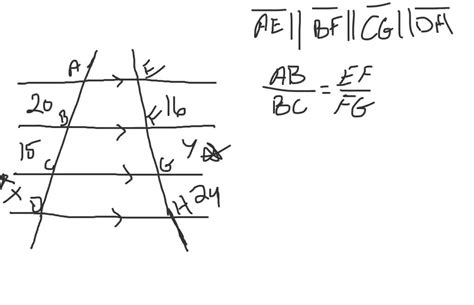 AE || BF || CG || DH
AB/BC = EF/FG
A E
20 B F 16
15 C G Y
X D H 24